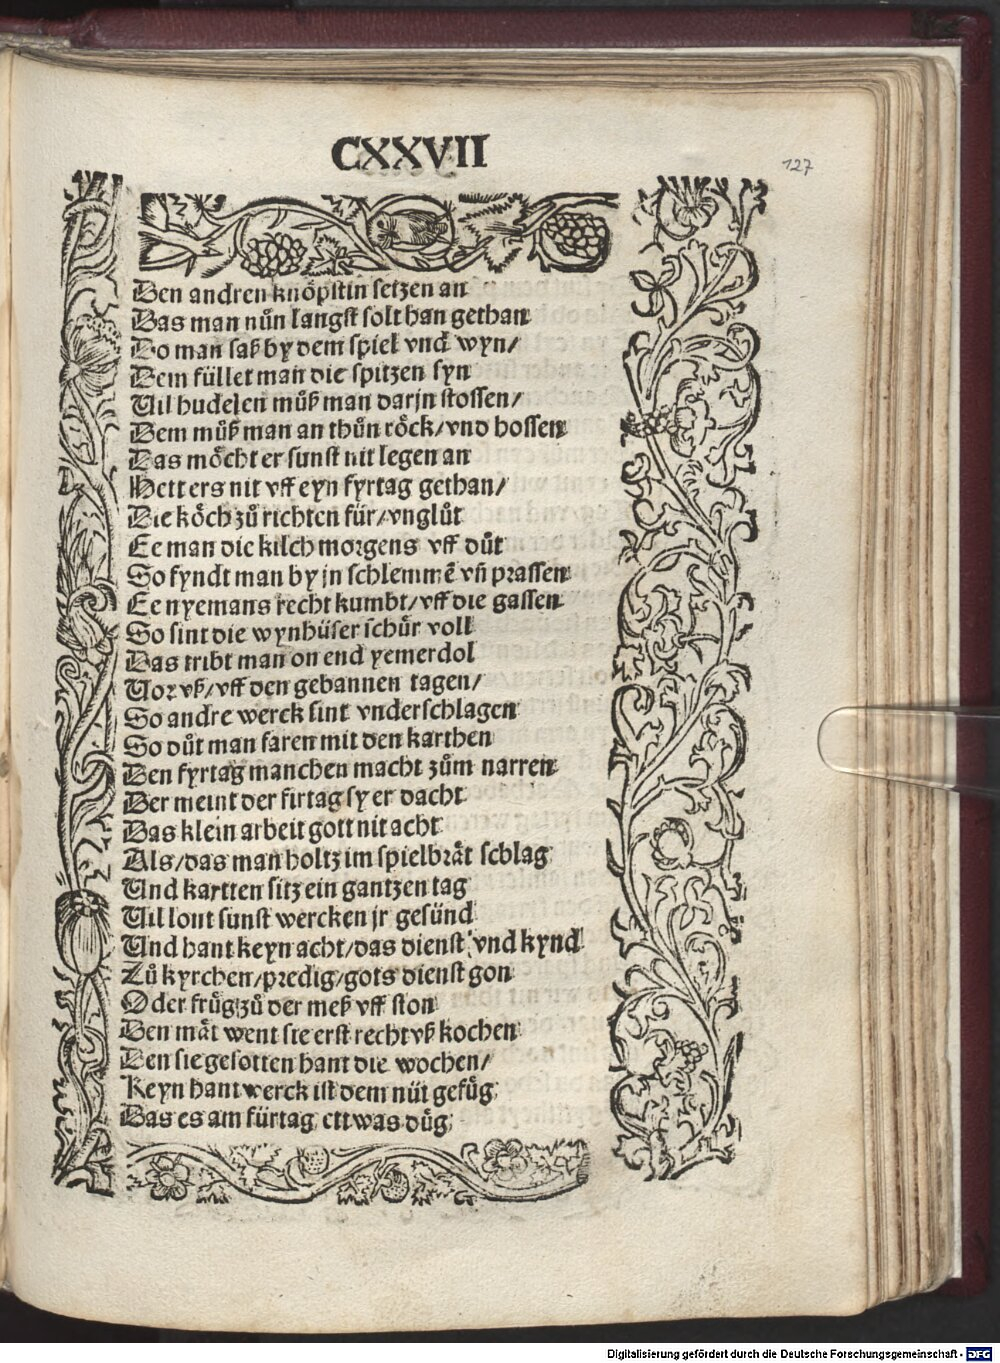 CXXVII
127
Den andren knöpflin setzen an
Das man nůn langst solt han gethan
Do man saß by dem spiel vnd wyn/
Dem füllet man die spitzen syn
Vil hudelen můß man darjn stossen/
Dem můß man an thůn röck/vnd hossen
Das möcht er sunst nit legen an
Hett ers nit vff eyn fyrtag gethan/
Die köch zů richten für/vnglůt
Ee man die kilch morgens vff důt
So fyndt man by jn schlemmē vn̄ prassen
Ee nyemans recht kumbt/vff die gassen
So sint die wynhüser schür voll
Das tribt man on end yemerdol
Vor vß/vff den gebannen tagen/
So andre werck sint vnderschlagen
So důt man faren mit den karthen
Den fyrtag manchen macht zům narren
Der meint der firtag sy er dacht
Das klein arbeit gott nit acht
Als/das man holtz im spielbrät schlag
Vnd kartten sitz ein gantzen tag
Vil lont sunst wercken jr gesünd
Vnd hant keyn acht/das dienst vnd kynd
Zů kyrchen/predig/gots dienst gon
Oder frůg zů der meß vff ston
Den mät went sie erst recht vß kochen
Den sie gesotten hant die wochen/
Keyn hantwerck ist dem nüt gefůg
Das es am fürtag ettwas důg
Digitalisierung gefördert durch die Deutsche Forschungsgemeinschaft - DFG